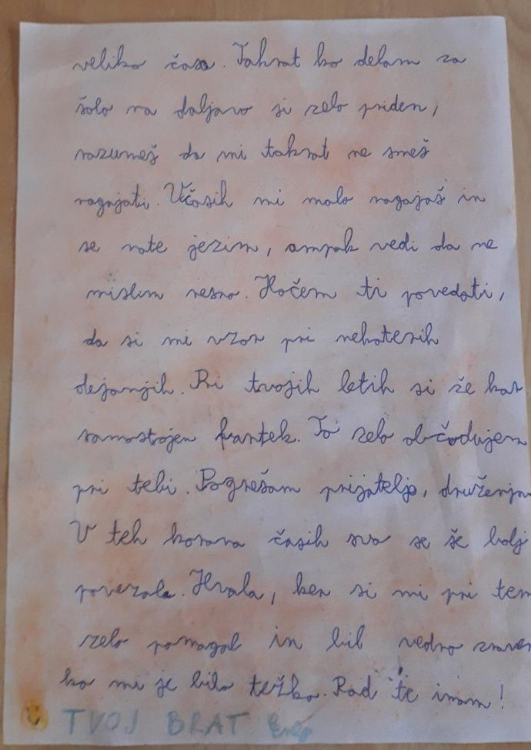 veliko časa. Takrat ko delam za
šolo na daljavo si zelo priden,
razumeš da mi takrat ne smeš
nagajati. Včasih mi malo nagajaš in
se nate jezim, ampak vedi da ne
mislim resno. Hočem ti povedati,
da si mi vzor pri nekaterih
dejanjih. Pri tvojih letih si že kar
samostojen fantek. To zelo občudujem
pri tebi. Pogrešam prijatelje, druženje
V teh korona časih sva se še bolj
povezala. Hvala, ker si mi pri tem
zelo pomagal in bil vedno zraven
ko mi je bilo težko. Rad te imam!
TVOJ BRAT